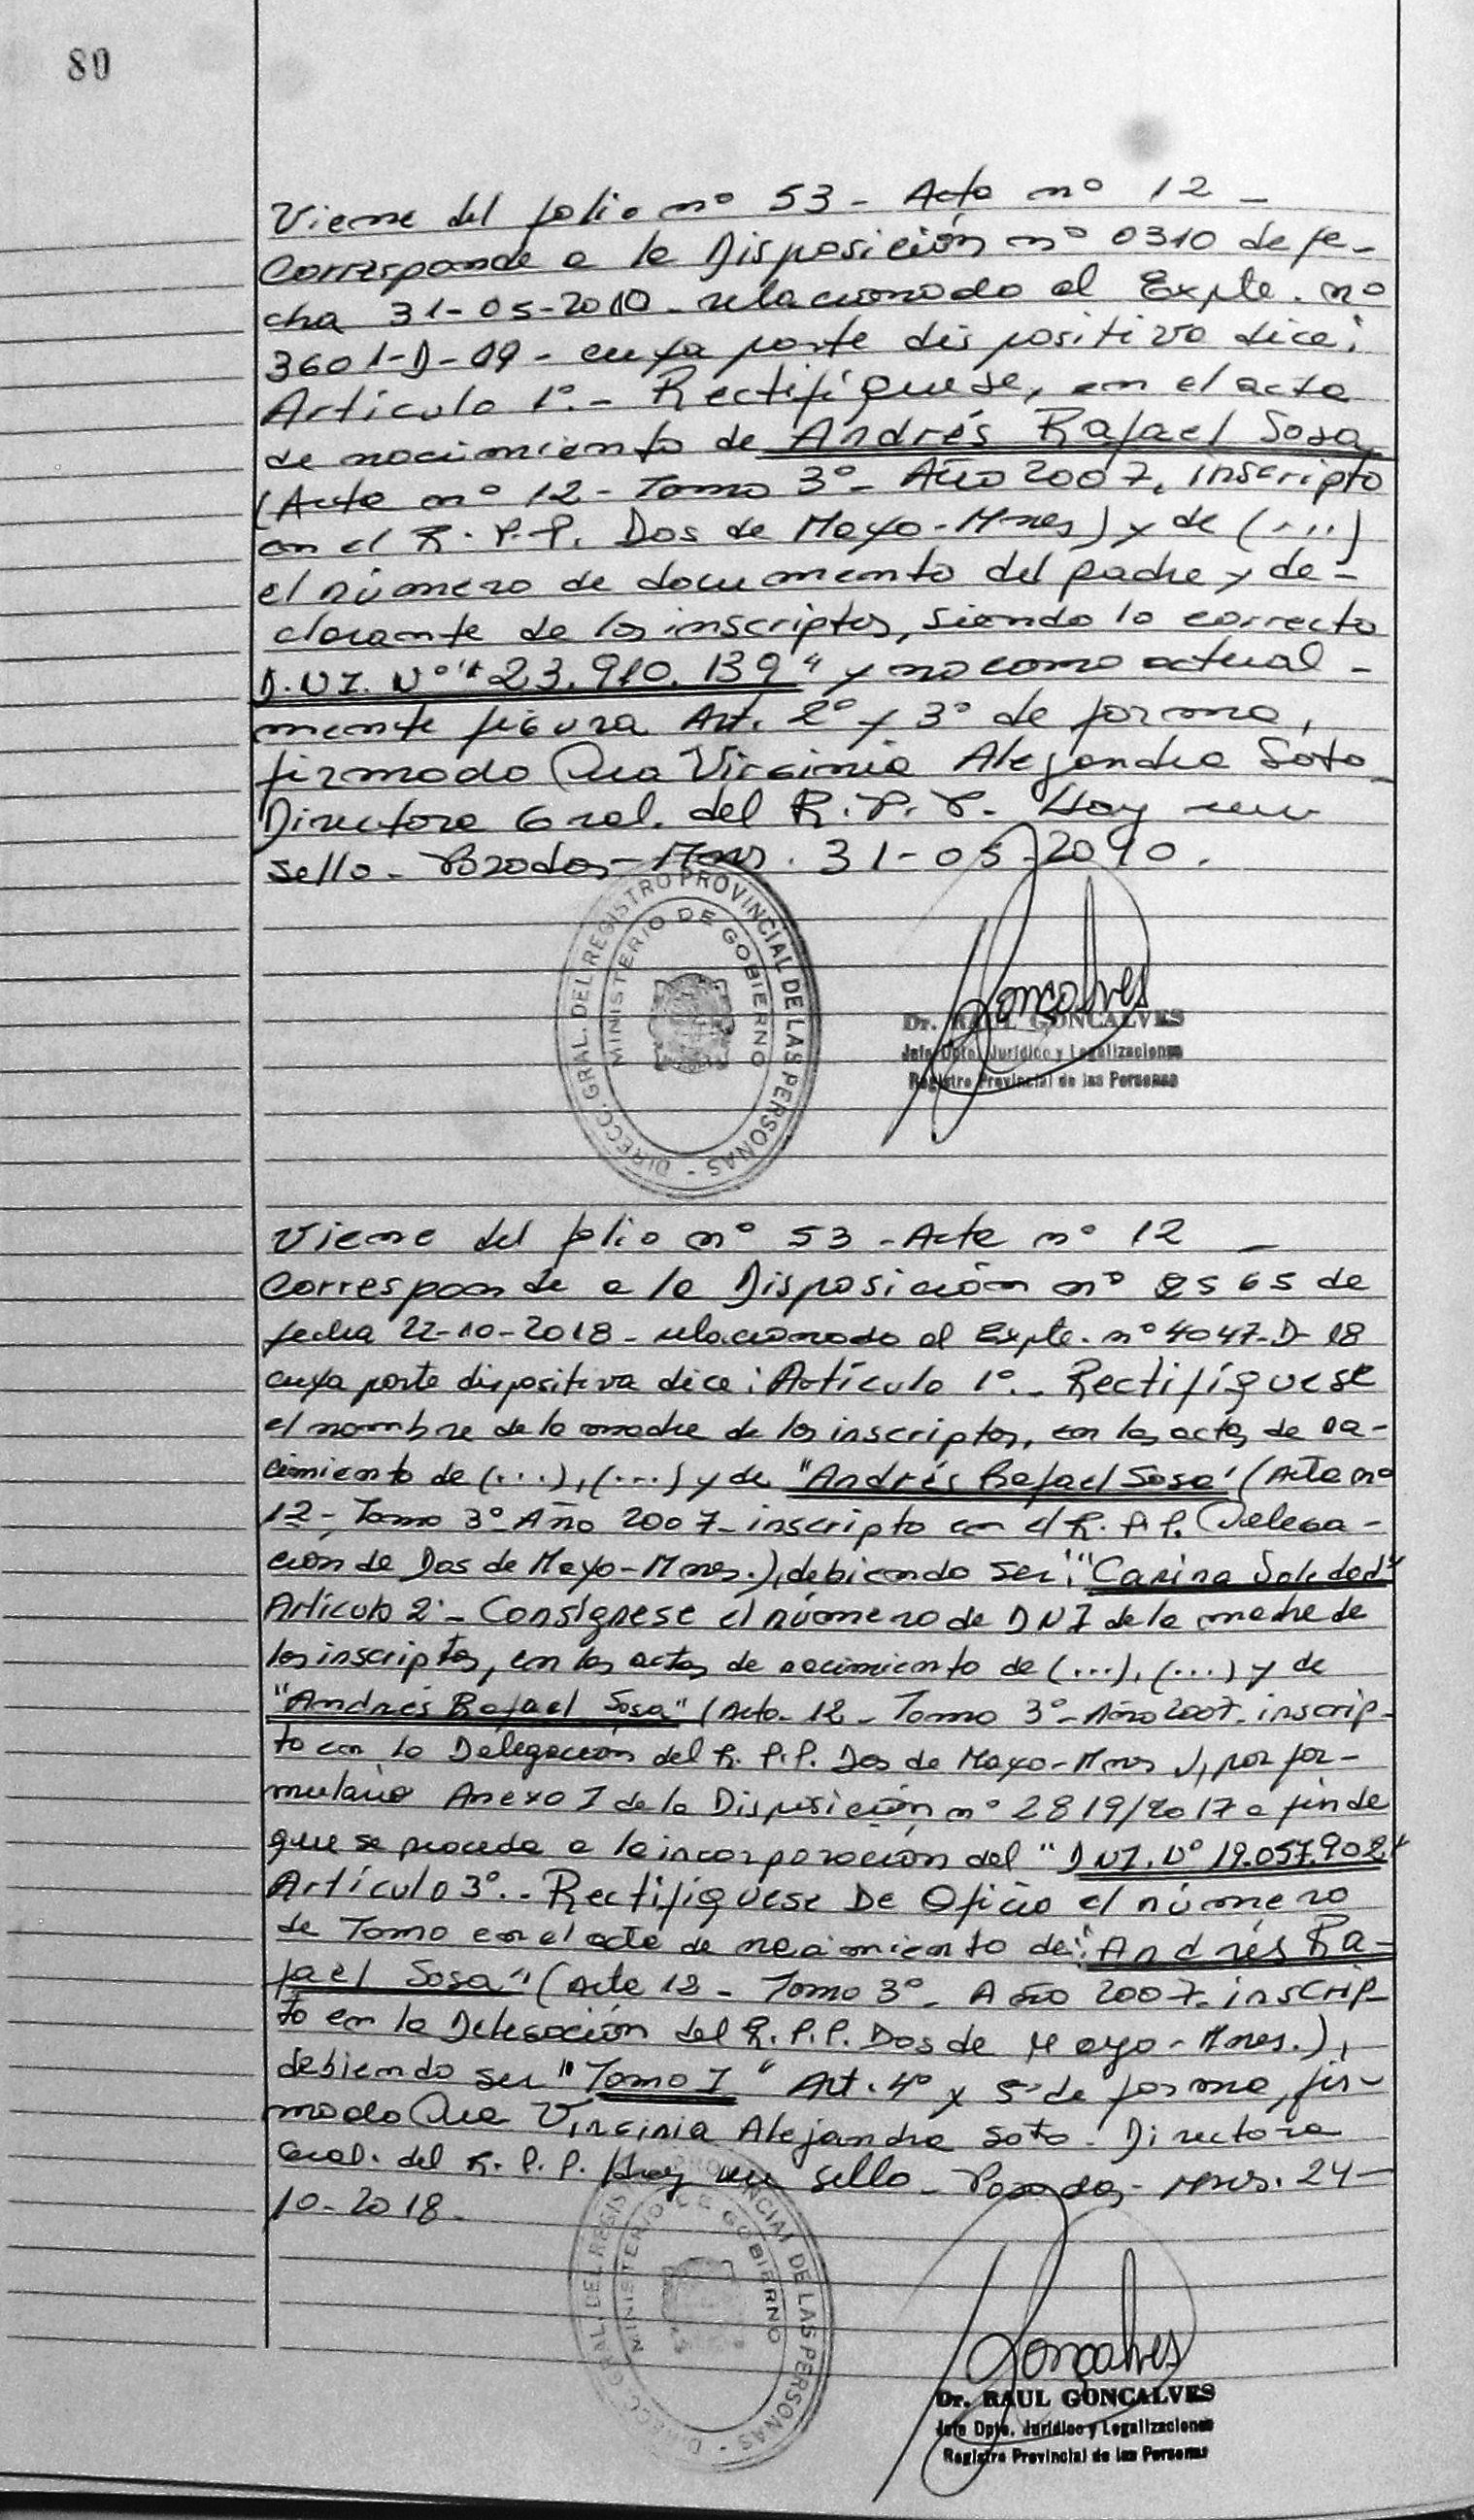 80
Viene del folio nº 53 - Acta nº 12 -
Corresponde a la Disposición nº 0310 de fe-
cha 31-05-2010 - relacionado al Expte. nº
3601-D-09 - cuya parte dispositiva dice:
Artículo 1º.- Rectifíquese, en el acta
de nacimiento de Andrés Rafael Sosa
(Acta nº 12 - Tomo 3º - Año 2007, inscripto
en el R.P.P. Dos de Mayo - Mnes) y de (...)
el número de documento del padre y de-
clarante de los inscriptos, siendo lo correcto
D.N.I. Nº "23.910.139" y no como actual-
mente figura Art. 2º y 3º de forma,
firmado Virginia Alejandra Soto
Directora Gral. del R.P.P. Hay un
sello - Posadas - Mnes. 31-05-2010.
DIRECC. GRAL. DEL REGISTRO PROVINCIAL DE LAS PERSONAS -
MINISTERIO DE GOBIERNO
Goncalves
Dr. RAUL GONCALVES
Jefe Dpto. Jurídico y Legalizaciones
Registro Provincial de las Personas
Viene del folio nº 53 - Acta nº 12 -
Corresponde a la Disposición nº 2565 de
fecha 22-10-2018 - relacionado al Expte. nº 4047-D-18
cuya parte dispositiva dice: Artículo 1º.- Rectifíquese
el nombre de la madre de los inscriptos, en las actas de na-
cimiento de (...), (...) y de "Andrés Rafael Sosa" (Acta nº
12 - Tomo 3º - Año 2007 - inscripto en el R.P.P. Delega-
ción de Dos de Mayo - Mnes.), debiendo ser: "Carina Soledad"
Artículo 2º - Consígnese el número de DNI de la madre de
los inscriptos, en las actas de nacimiento de (...), (...) y de
"Andrés Rafael Sosa" (Acta - 12 - Tomo 3º - Año 2007 - inscrip-
to en la Delegación del R.P.P. Dos de Mayo - Mnes), por for-
mulario Anexo I de la Disposición nº 2819/2017 a fin de
que se proceda a la incorporación del "DNI. Nº 19.057.902"
Artículo 3º.- Rectifíquese De Oficio el número
de Tomo en el acta de nacimiento de: "Andrés Ra-
fael Sosa" (Acta 12 - Tomo 3º - Año 2007 - inscrip-
to en la Delegación del R.P.P. Dos de Mayo - Mnes.),
debiendo ser "Tomo I" Art. 4º y 5º de forma, fir-
mado Virginia Alejandra Soto - Directora
Gral. del R.P.P. Hay un sello - Posadas - Mnes. 24-
10-2018.
DIRECC. GRAL. DEL REGISTRO PROVINCIAL DE LAS PERSONAS -
MINISTERIO DE GOBIERNO
Goncalves
Dr. RAUL GONCALVES
Jefe Dpto. Jurídico y Legalizaciones
Registro Provincial de las Personas